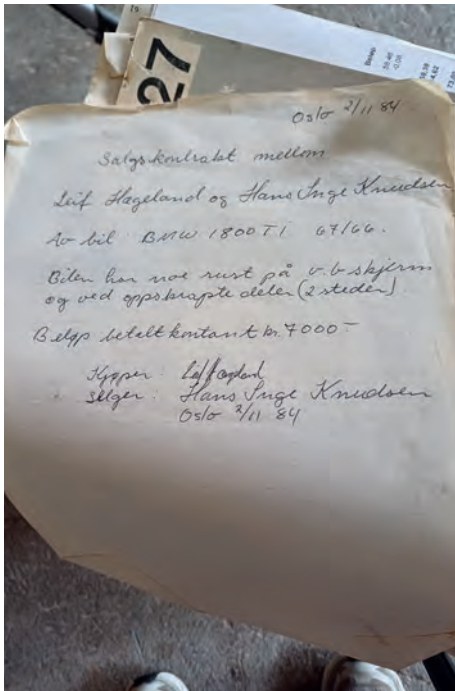 27
Beløp
Oslo 2/11 84
Salgskontrakt mellom
Leif Hageland og Hans Inge Knudsen
Av bil BMW 1800 TI 67/66.
Bilen har noe rust på v.b-skjerm
og ved oppskrapte deler (2 steder)
Beløp betalt kontant kr. 7000-
Kjøper:
Selger: Hans Inge Knudsen
Oslo 2/11 84